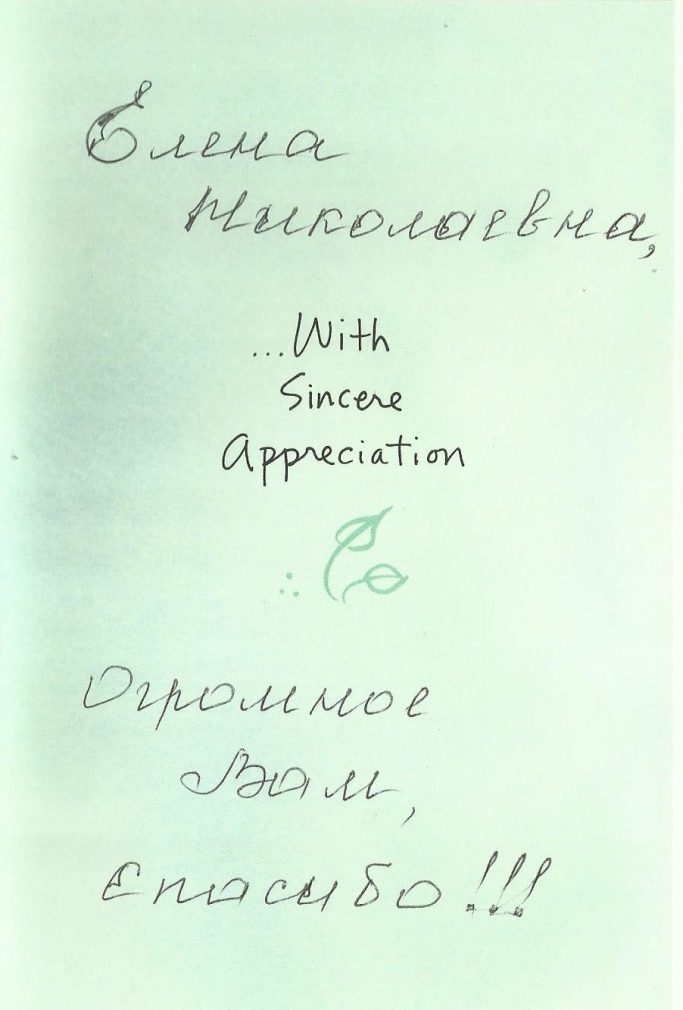 Елена
Николаевна,
...With
Sincere
Appreciation
Огромное
Вам,
спасибо!!!